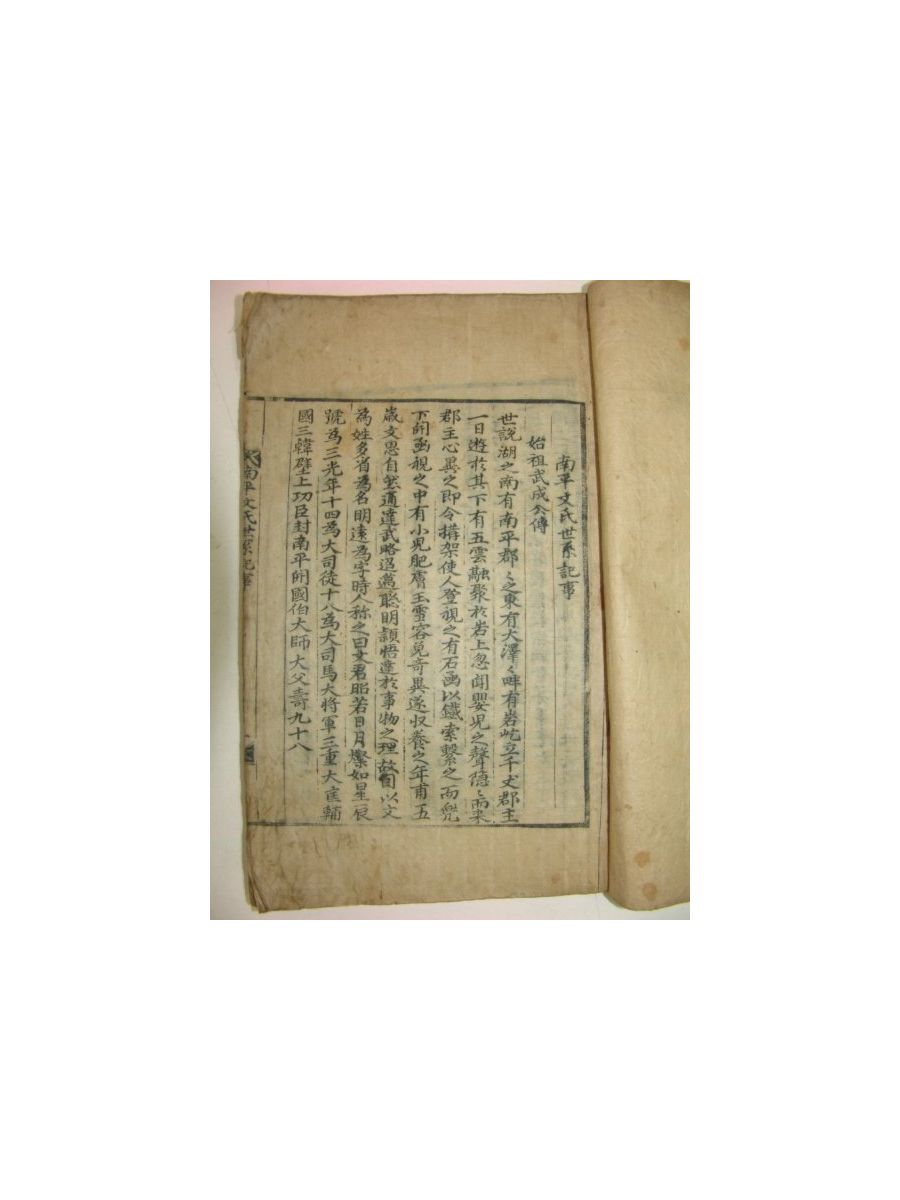 南平文氏世系記事
始祖武成公傳
世說湖之南有南平郡〻之東有大澤〻畔有岩屹立千丈郡主
一日遊於其下有五雲融聚於岩上忽聞嬰児之聲隠〻而來
郡主心異之即令搆架使人登視之有石函以鐵索繫之而㒷
下開函視之中有小児肥膚玉雪容皃奇異遂収養之年甫五
歳文思自然通達武略迢邁聡明頴悟達於事物之理故因以文
為姓多省為名明遠為字時人称之曰文君昭若日月燦如星辰
號為三光年十四為大司徒十八為大司馬大将軍三重大匡輔
國三韓壁上功臣封南平開國伯大師大父壽九十八
南平文氏世系記事